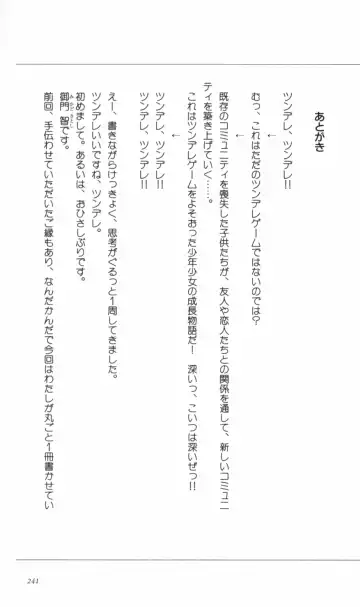 あとがき
ツンデレ、ツンデレ!!
←
むっ、これはただのツンデレゲームではないのでは?
←
既存のコミュニティを喪失した子供たちが、友人や恋人たちとの関係を通して、新しいコミュニ
ティを築き上げていく……。
これはツンデレゲームをよそおった少年少女の成長物語だ! 深いっ、こいつは深いぜっ!!
←
ツンデレ、ツンデレ!!
ツンデレ、ツンデレ!!
えー、書きながらけっきょく、思考がぐるっと1周してきました。
ツンデレいいですね、ツンデレ。
初めまして。あるいは、おひさしぶりです。
御門 智です。
前回、手伝わせていただいたご縁もあり、なんだかんだで今回はわたしが丸ごと1冊書かせてい
241